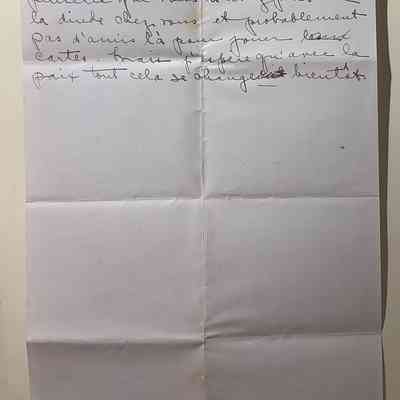 la dinde chez vous et probablement
pas d'amis là pour jouer aux
cartes. Mais j'espère qu'avec la
paix tout cela se changera bientôt